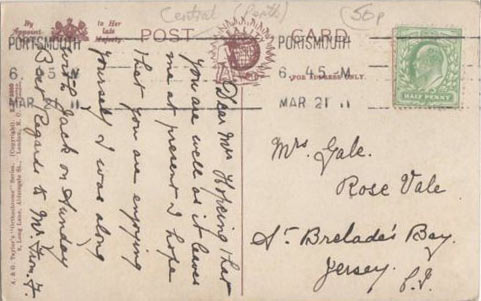 Central (Perth)
50p
By Appointment
to Her late Majesty.
POST CARD
FOR ADDRESS ONLY.
PORTSMOUTH
6. 5
MAR 11
PORTSMOUTH
6. 45 M
MAR 21 11
HALF PENNY
Dear Mrs Hopeing that
you are well as it leaves
me at present I hope
that you are enjoying
yourself I was along
with Jack on Sunday
Best Regards to Mr. From F.
Mrs. Gale.
Rose Vale
St. Brelade's Bay.
Jersey.
C.I.